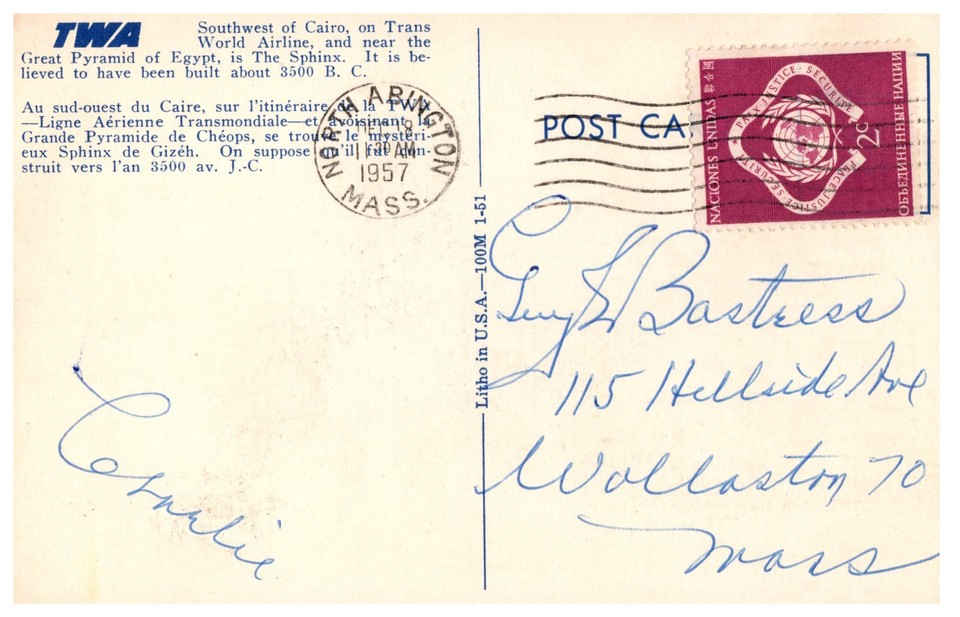 TWA
Southwest of Cairo, on Trans
World Airline, and near the
Great Pyramid of Egypt, is The Sphinx. It is be-
lieved to have been built about 3500 B. C.
Au sud-ouest du Caire, sur l'itinéraire de la TWA
—Ligne Aérienne Transmondiale—et avoisinant la
Grande Pyramide de Chéops, se trouve le mystéri-
eux Sphinx de Gizéh. On suppose qu'il fut con-
struit vers l'an 3500 av. J.-C.
NORTH ABINGTON
8
11 30 AM
1957
MASS.
Litho in U.S.A.—100M 1-51
POST CA
NACIONES UNIDAS
PAIX JUSTICE SECURITE
PEACE JUSTICE SECURITY
2c
ОБЪЕДИНЕННЫЕ НАЦИИ
Bastress
115 Hillside Ave
Wollaston 70
Mass